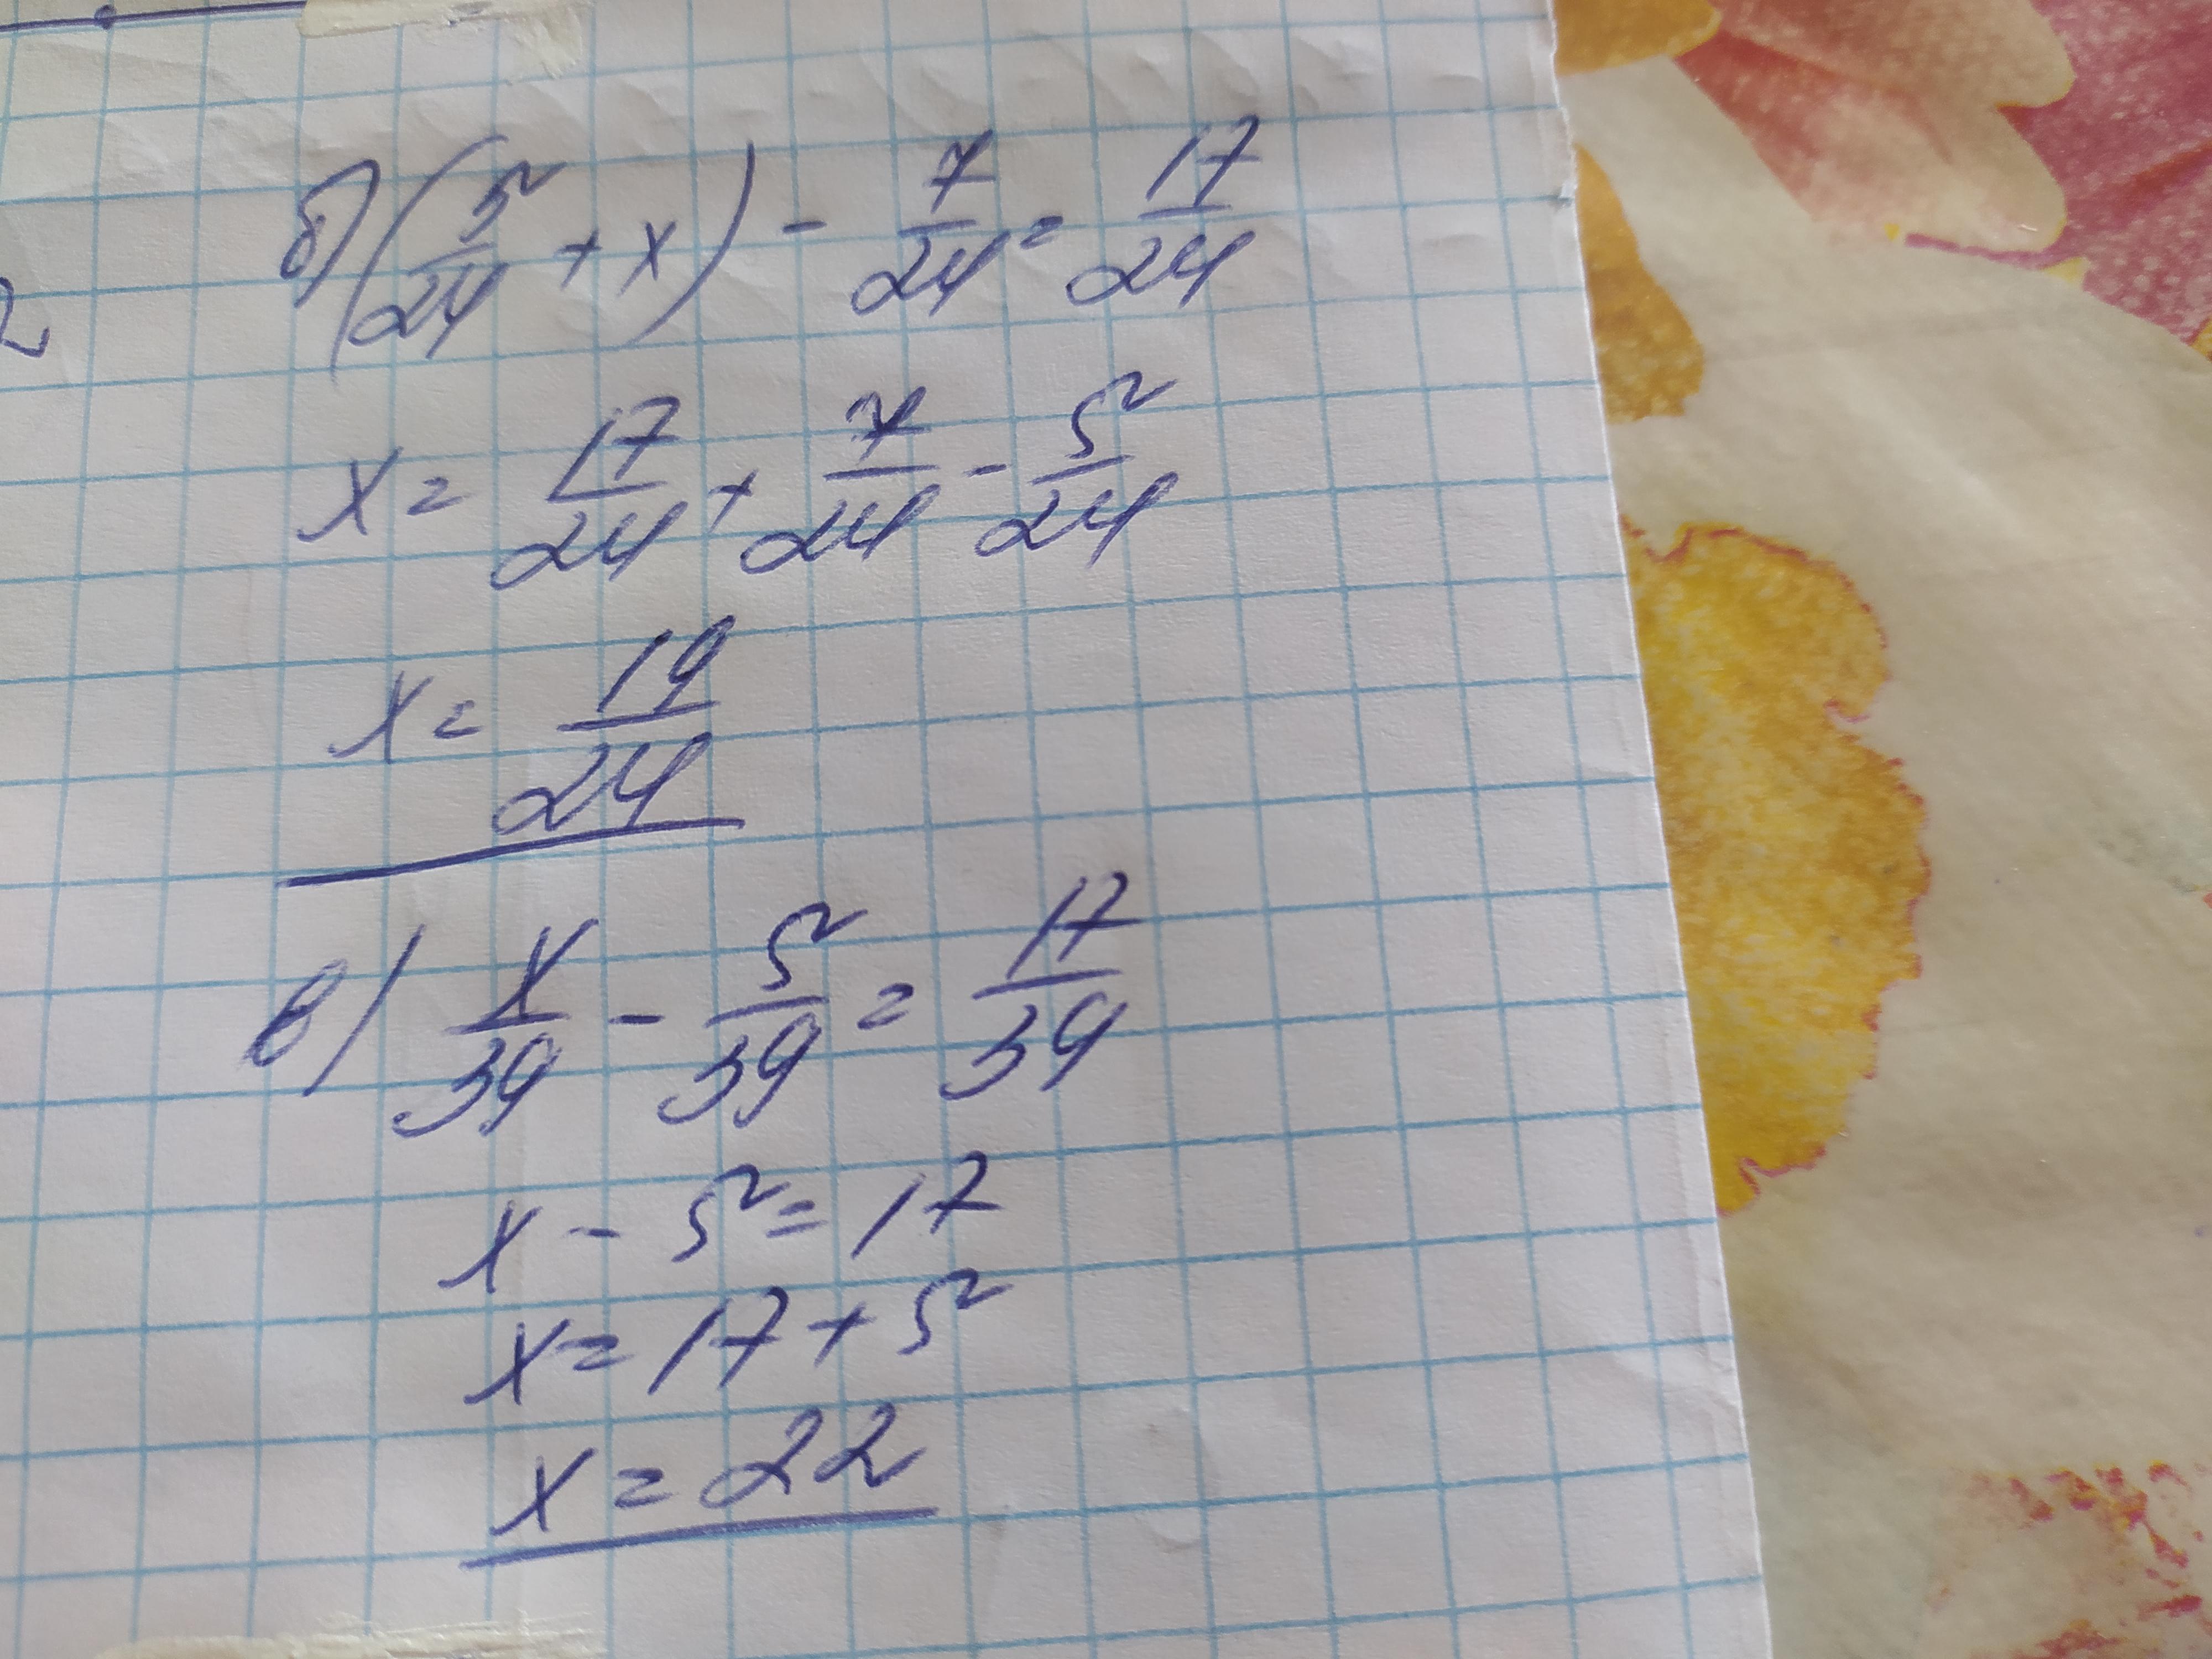 б) (5/24 + x) - 7/24 = 17/24
x = 17/24 + 7/24 - 5/24
x = 19/24
в) x/39 - 5/39 = 17/39
x - 5 = 17
x = 17 + 5
x = 22